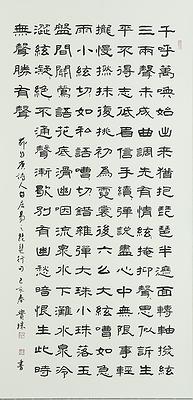 千呼萬喚始出來猶抱琵琶半遮面轉軸撥絃
三兩聲未成曲調先有情絃々掩抑聲々思似訴生
平不得志低眉信手續々彈說盡心中無限事輕
攏慢撚抹復挑初為霓裳後六幺大絃嘈々如急
雨小絃切々如私語嘈々切々錯雜彈大珠小珠落玉
盤間關鶯語花底滑幽咽流泉水下灘水泉冷
澀絃凝絕不通聲漸歇別有幽愁暗恨生此時
無聲勝有聲
節自唐詩人白居易之琵琶行句 己亥春 書